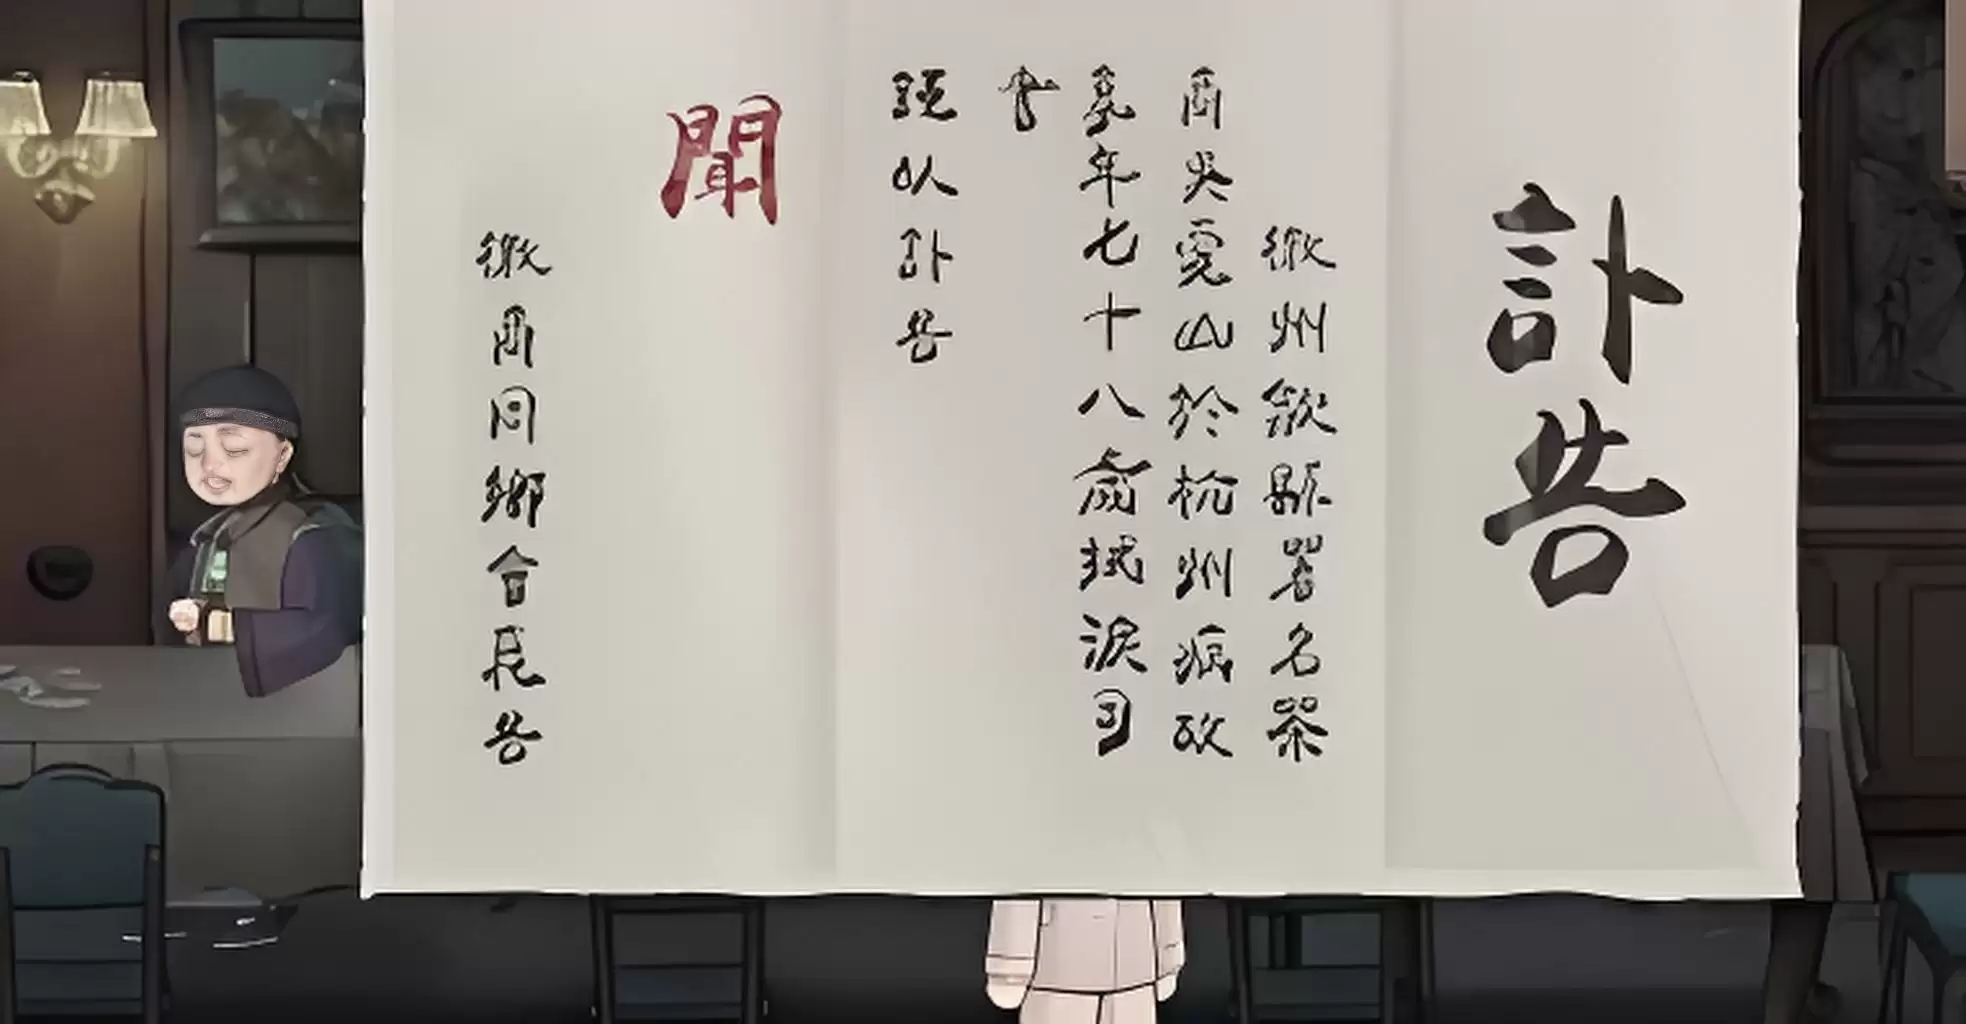 訃告
徽州歙縣署名茶
商吳雲山於杭州病故
享年七十八歲拭淚引
書
謹以訃告
聞
徽商同鄉會氏告